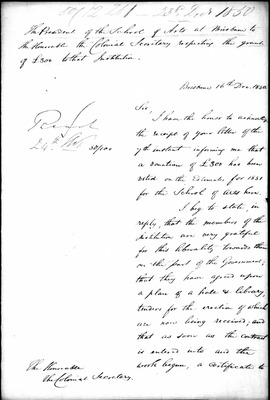 1850
The President of the School of Arts at Brisbane to
the Honorable the Colonial Secretary respecting the grant
of £300 to that Institution.
Brisbane 16th Decr. 1850
Sir,
I have the honor to acknowledge
the receipt of your letter of the
7th instant informing me that
a donation of £300 has been
voted on the Estimate for 1851
for the School of Arts here.
I beg to state, in
reply, that the members of the
Institution are very grateful
for this liberality towards them
on the part of the Government;
that they have agreed upon
a plan of a hall & library,
tenders for the erection of which
are now being received; and
that as soon as the contract
is entered into and the
work begun, a certificate to
The Honorable
The Colonial Secretary.